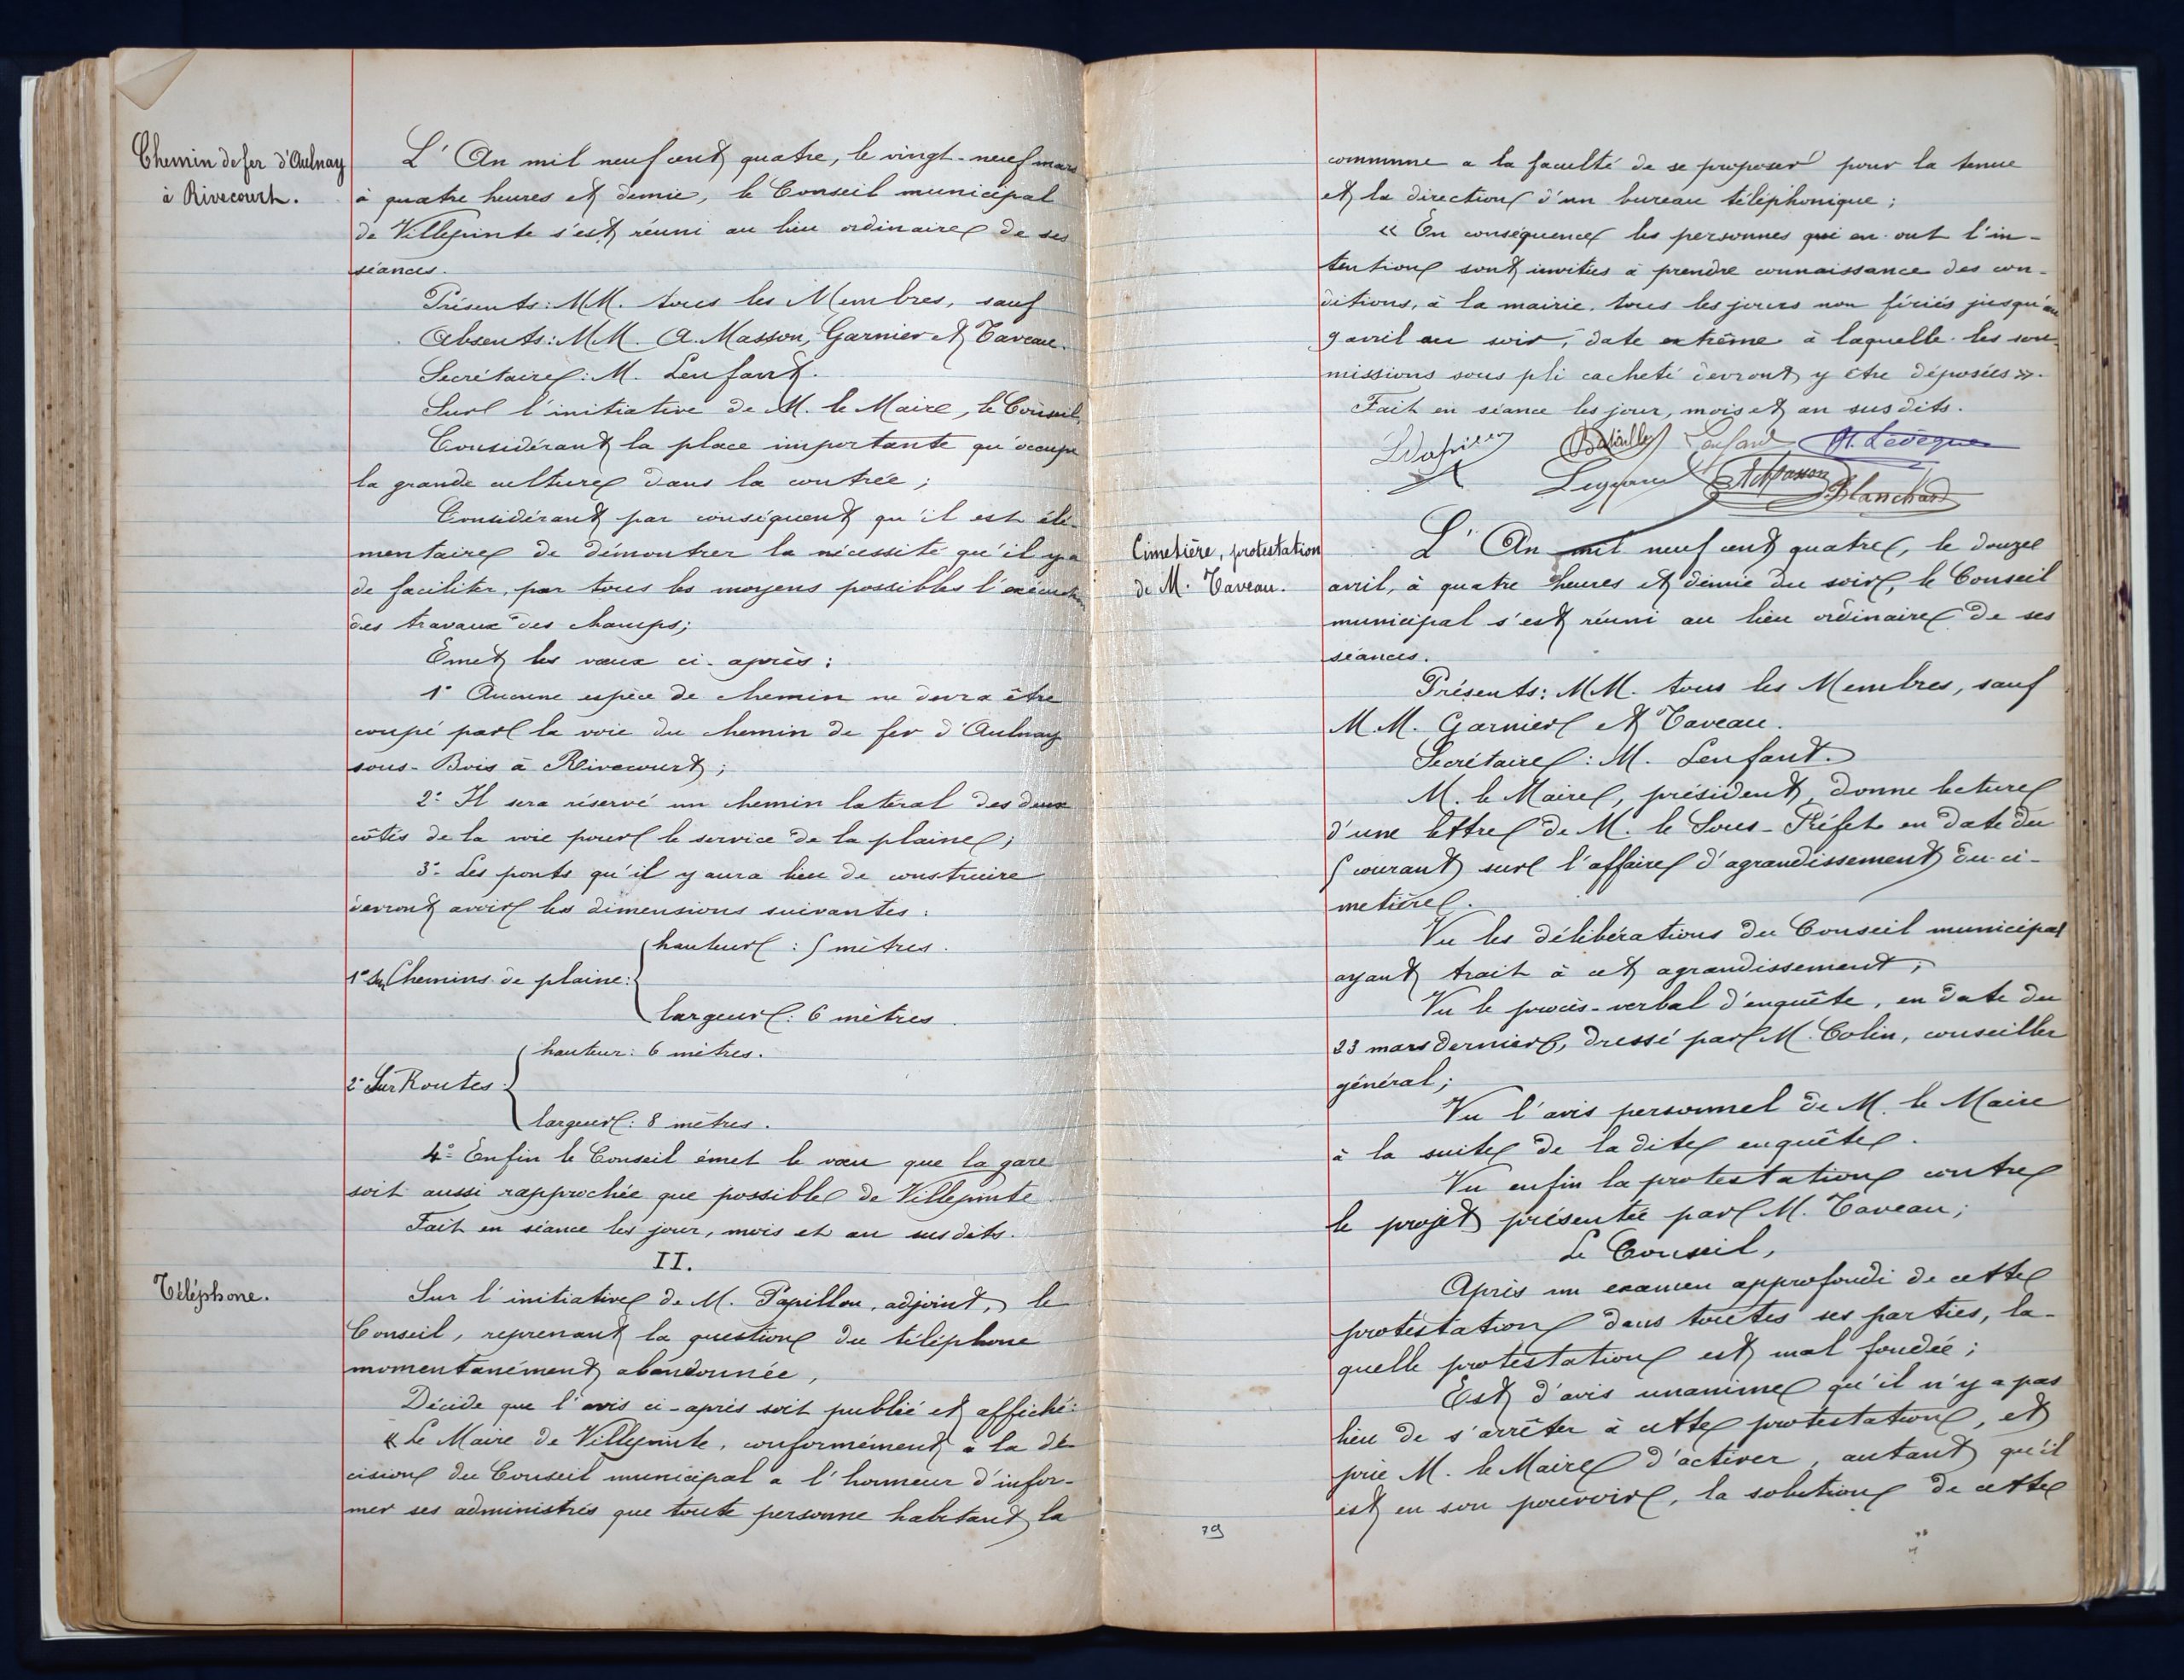 Chemin de fer d'Aulnay
à Rivecourt.
L'An mil neuf cent quatre, le vingt-neuf mars
à quatre heures et demie, le Conseil municipal
de Villepinte s'est réuni au lieu ordinaire de ses
séances.
Présents: MM. tous les Membres, sauf
Absents: MM. A. Masson, Garnier et Taveau.
Secrétaire: M. Lenfant.
Sur l'initiative de M. le Maire, le Conseil,
Considérant la place importante qu'occupe
la grande culture dans la contrée;
Considérant par conséquent qu'il est élé-
mentaire de démontrer la nécessité qu'il y a
de faciliter, par tous les moyens possibles l'exécution
des travaux des champs;
Emet les vœux ci-après:
1° Aucune espèce de chemin ne devra être
coupé par la voie du chemin de fer d'Aulnay
sous-Bois à Rivecourt;
2° Il sera réservé un chemin latéral des deux
côtés de la voie pour le service de la plaine;
3° Les ponts qu'il y aura lieu de construire
devront avoir les dimensions suivantes:
hauteur: 5 mètres.
1° Sur Chemins de plaine:
largeur: 6 mètres.
hauteur: 6 mètres.
2° Sur Routes:
largeur: 8 mètres.
4° Enfin le Conseil émet le vœu que la gare
soit aussi rapprochée que possible de Villepinte
Fait en séance les jour, mois et an susdits.
II.
Téléphone.
Sur l'initiative de M. Papillon, adjoint, le
Conseil, reprenant la question du téléphone
momentanément abandonnée,
Décide que l'avis ci-après soit publié et affiché:
« Le Maire de Villepinte, conformément à la dé-
cision du Conseil municipal a l'honneur d'infor-
mer ses administrés que toute personne habitant la
commune a la faculté de se proposer pour la tenue
et la direction d'un bureau téléphonique;
« En conséquence les personnes qui en ont l'in-
tention sont invitées à prendre connaissance des con-
ditions, à la mairie, tous les jours non fériés jusqu'au
9 avril au soir, date extrême à laquelle les sou-
missions sous pli cacheté devront y être déposées ».
Fait en séance les jour, mois et an susdits.
Bataille Lenfant M. Lévêque
A. Masson Blanchard
Cimetière, protestation
de M. Taveau.
L'An mil neuf cent quatre, le douze
avril, à quatre heures et demie du soir, le Conseil
municipal s'est réuni au lieu ordinaire de ses
séances.
Présents: MM. tous les Membres, sauf
M.M. Garnier et Taveau.
Secrétaire: M. Lenfant.
M. le Maire, président, donne lecture
d'une lettre de M. le Sous-Préfet en date du
5 courant sur l'affaire d'agrandissement du ci-
metière.
Vu les délibérations du Conseil municipal
ayant trait à cet agrandissement;
Vu le procès-verbal d'enquête, en date du
23 mars dernier, dressé par M. Colin, conseiller
général;
Vu l'avis personnel de M. le Maire
à la suite de ladite enquête.
Vu enfin la protestation contre
le projet présentée par M. Taveau;
Le Conseil,
Après un examen approfondi de cette
protestation dans toutes ses parties, la-
quelle protestation est mal fondée;
Est d'avis unanime qu'il n'y a pas
lieu de s'arrêter à cette protestation, et
prie M. le Maire d'activer, autant qu'il
est en son pouvoir, la solution de cette
79